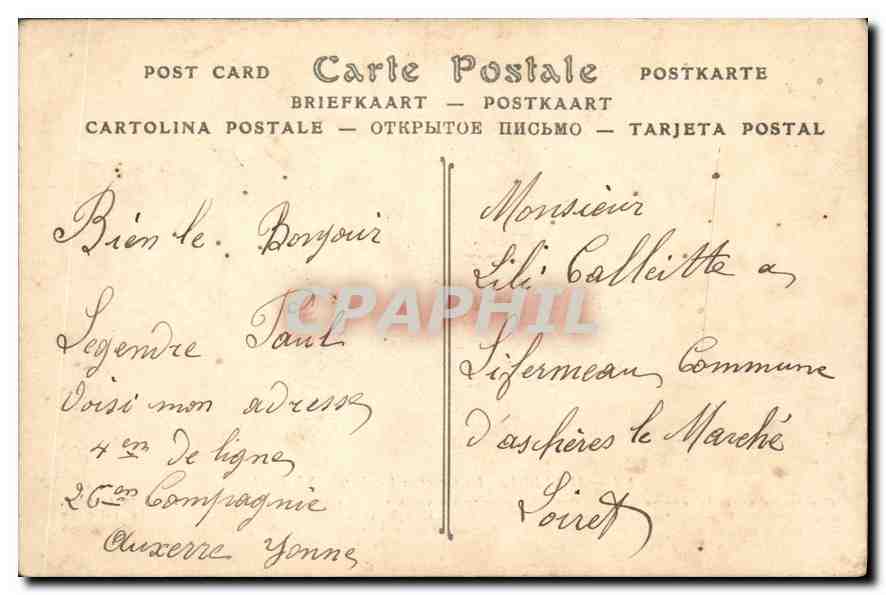 POST CARD Carte Postale POSTKARTE
BRIEFKAART — POSTKAART
CARTOLINA POSTALE — ОТКРЫТОЕ ПИСЬМО — TARJETA POSTAL
Bien le Bonjour
Legendre Paul
Voisi mon adresse
4em de ligne
26em Compagnie
Auxerre Yonne
Monsieur
Lili Calleitte a
Lifermeau Commune
d'aschères le Marché
Loiret
CPAPHIL